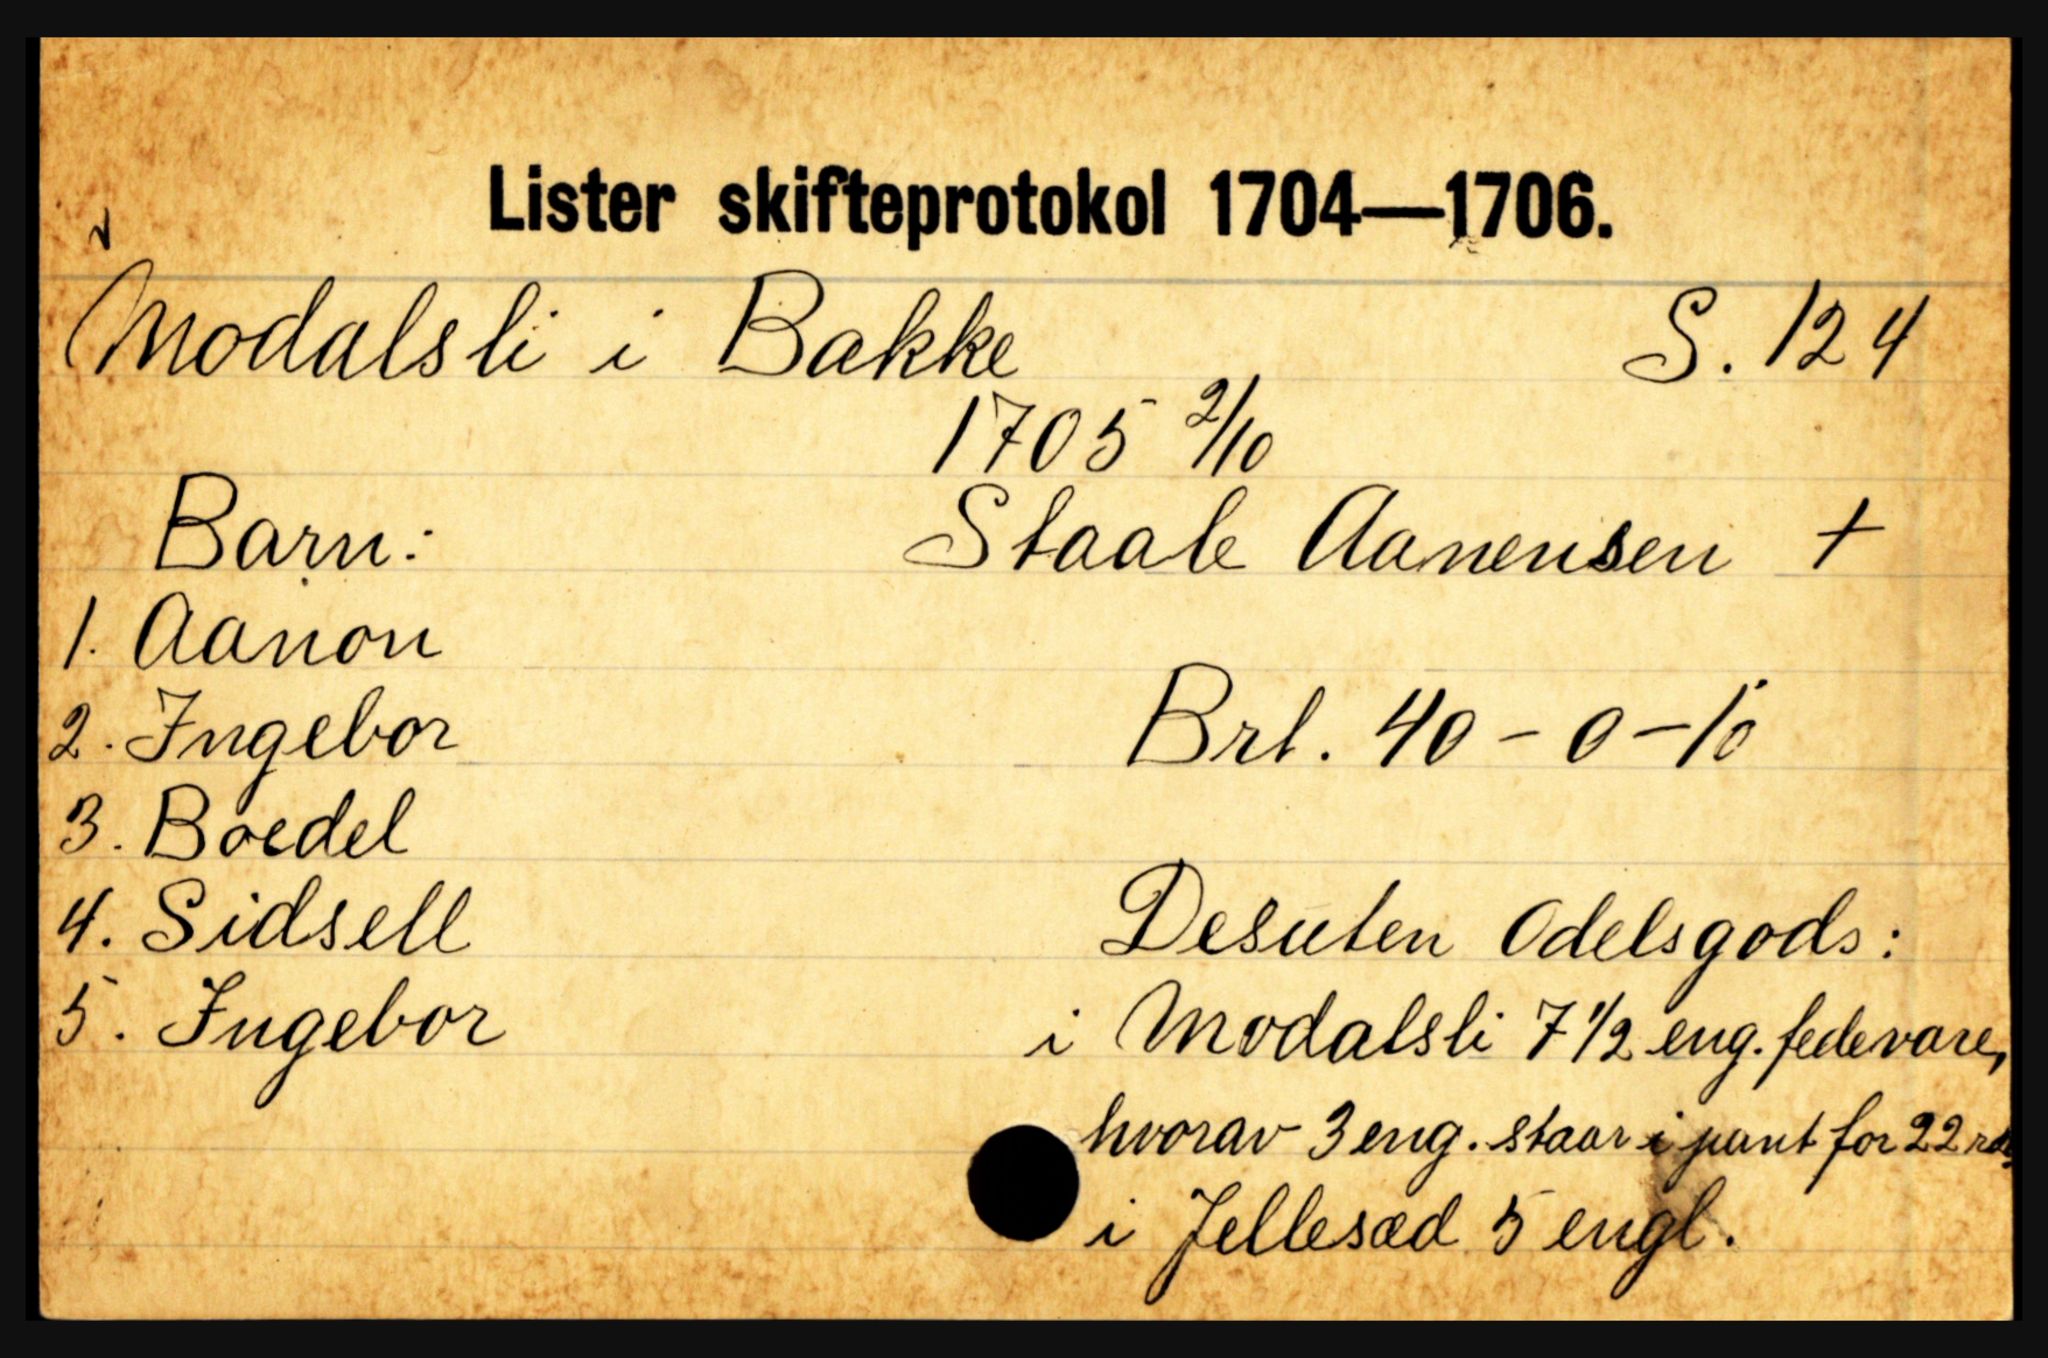 Lister skifteprotokol 1704—1706.
Modalsli i Bakke S. 124
1705 2/10
Barn: Staale Aanensen +
1. Aanon
2. Ingebor Brt. 40 - 0 - 10
3. Boedel
4. Sidsell Desuten Odelsgods:
5. Ingebor i Modalsli 7 1/2 eng. fedevare,
hvorav 3 eng. staar i pant for 22 rd,
i Jellesæd 5 engl.